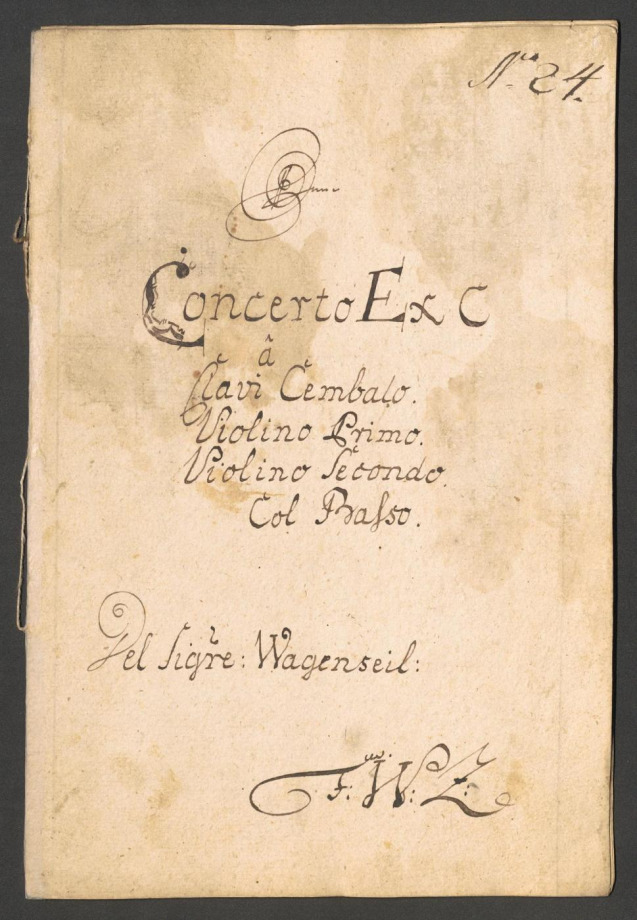 No. 24.
Concerto Ex C
â
Clavi Cembalo.
Violino Primo.
Violino Secondo.
Col Basso.
Del Sigre: Wagenseil:
F: W: Z: